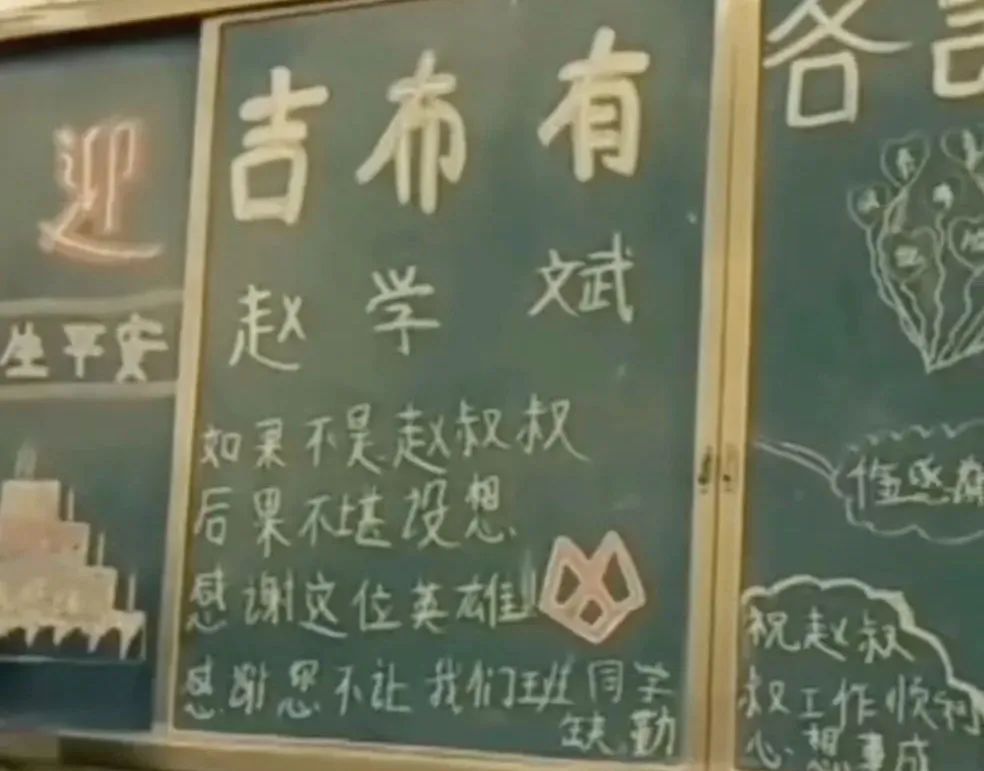 迎
生平安
吉布有
赵学斌
如果不是赵叔叔
后果不堪设想
感谢这位英雄!!
感谢您不让我们班同学
缺勤
各
祝赵叔
叔工作顺利
心想事成